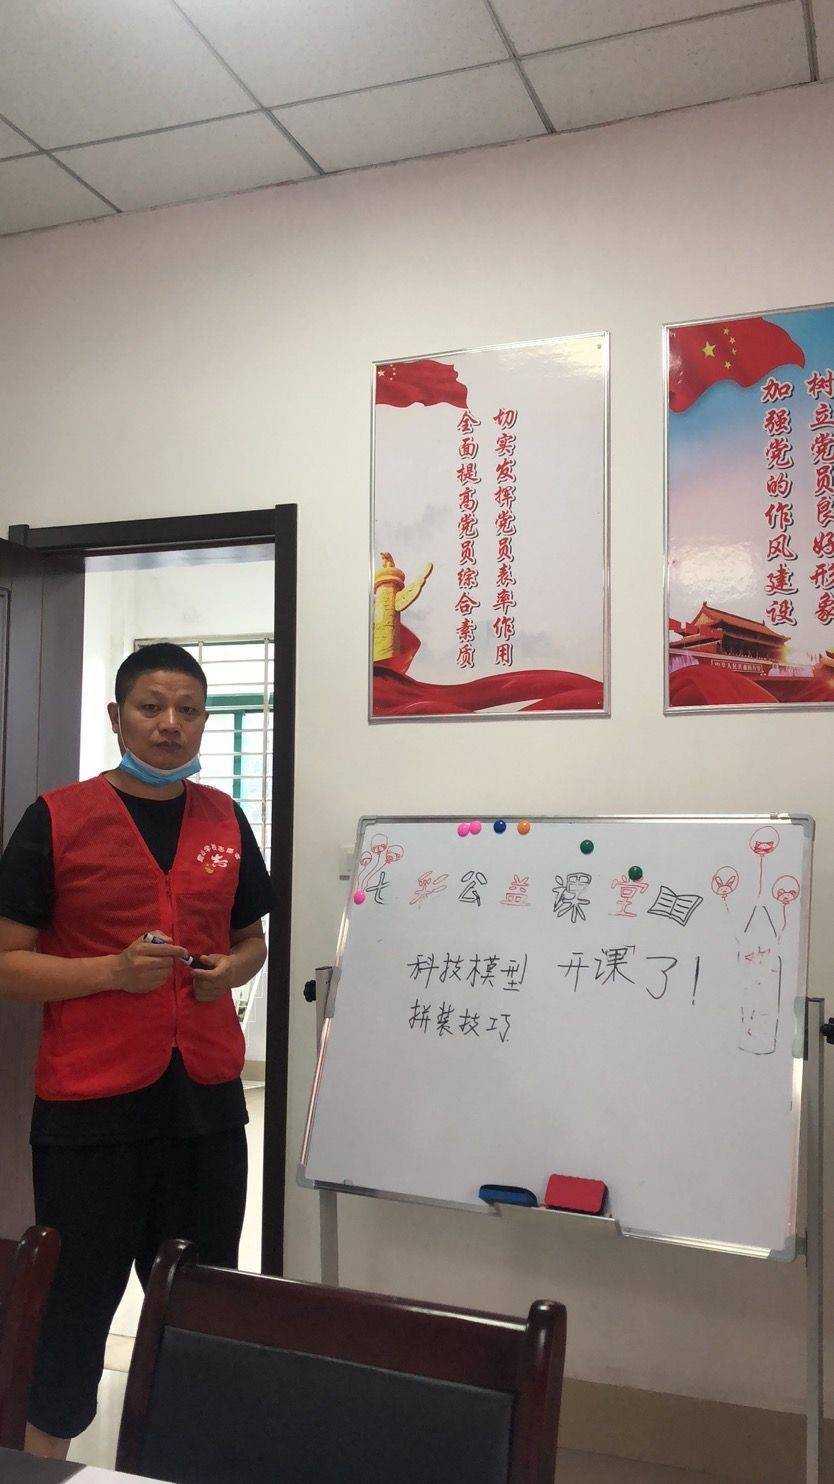 切实发挥党员表率作用
全面提高党员综合素质
树立党员良好形象
加强党的作风建设
七彩公益课堂
八
科技模型 开课了！
拼装技巧